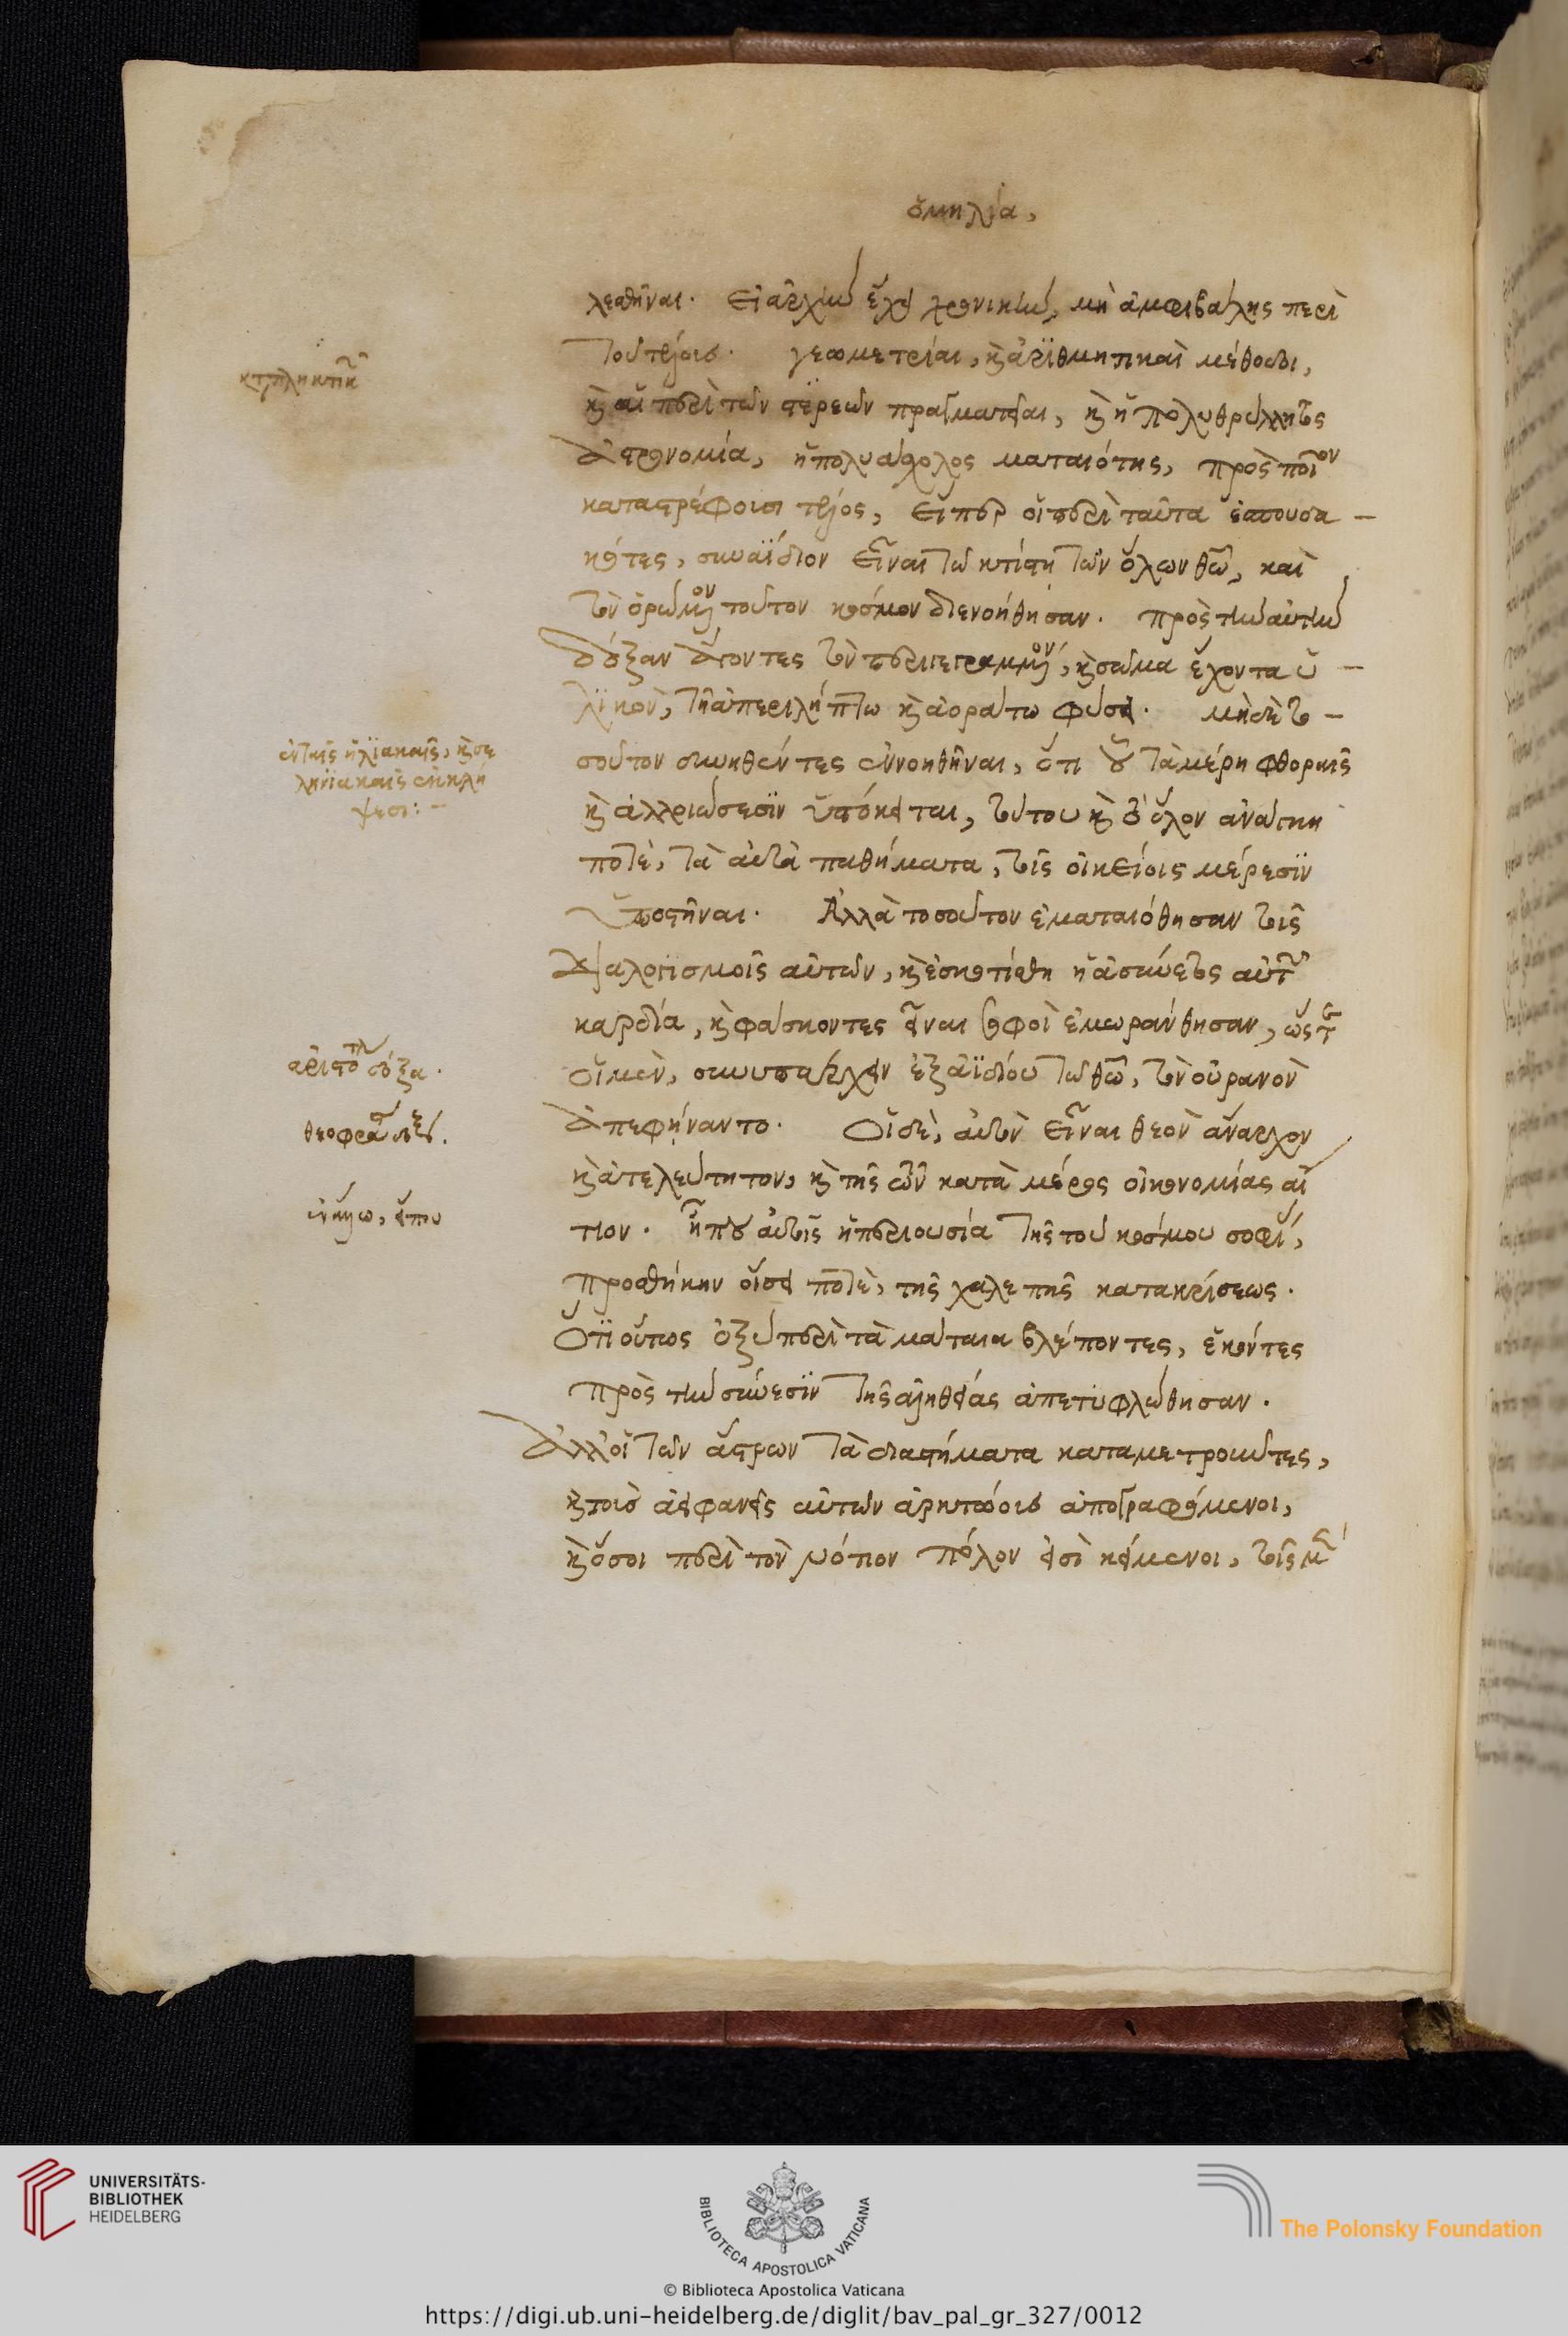 ὁμηλία,
λεσθῆναι. Εἰ ἀρχὴν ἔχει χρονικὴν, μὴ ἀμφιβάλης περὶ
τοῦ τέλους. γεωμετρίαι, καὶ ἀρϊθμητικαὶ μέθοδοι,
καὶ αἱ περὶ τῶν στερεῶν πραγματεῖαι, καὶ ἡ πολυθρύλλητος
ἀστρονομία, ἡ πολυάσχολος ματαιότης, πρὸς ποῖον
καταστρέφουσι τέλος, εἴπερ οἱ περὶ ταῦτα ἐσπουδα
κότες, συναΐδιον εἶναι τῶ κτίστη τῶν ὅλων θῶ, καὶ
τὸν ὁρώμενον τοῦτον κόσμον διενοήθησαν. πρὸς τὴν αὐτὴν
δόξαν ἄγοντες τὸν περιγεγραμμένον, καὶ σῶμα ἔχοντα ὑ
λϊκὸν, τῆ ἀπεριλήπτω καὶ ἀοράτω φύσει. μηδὲ το
σοῦτον δυνηθέντες ἐννοηθῆναι, ὅτι οὗ τὰ μέρη φθοραῖς
καὶ ἀλλοιώσεσϊν ὑπόκειται, τούτου καὶ τὸ ὅλον ἀνάγκη
ποτὲ, τὰ αὐτὰ παθήματα, τοῖς οἰκείοις μέρεσϊν
ὑποστῆναι. Ἀλλὰ τοσοῦτον ἐματαιόθησαν τοῖς
διαλογϊσμοῖς αὐτῶν, καὶ ἐσκοτίσθη ἡ ἀσύνετος αὐτῶν
καρδία, καὶ φάσκοντες εἶναι σοφοὶ ἐμωράνθησαν, ὥστε
οἱ μὲν, συνυπάρχειν ἐξ ἀϊδίου τῶ θῶ, τὸν οὐρανὸν
ἀπεφήναντο. Οἱ δὲ, αὐτὸν εἶναι θεὸν ἄναρχον
καὶ ἀτελεύτητον, καὶ τῆς τῶν κατὰ μέρος οἰκονομίας αἴ
τιον. ἦ που αὐτοῖς ἡ περιουσία τῆς τοῦ κόσμου σοφίας,
προσθήκην οἴσει ποτὲ, τῆς χαλεπῆς κατακρίσεως.
Ὅτϊ οὕτως ὀξὺ περὶ τὰ μάταια βλέποντες, ἑκόντες
πρὸς τὴν σύνεσϊν τῆς ἀληθείας ἀπετυφλώθησαν.
Ἀλλ' οἱ τῶν ἄστρων τὰ διαστήματα καταμετροῦντες,
καὶ τοὺς ἀειφανεῖς αὐτῶν ἀρκτώους ἀπογραφόμενοι,
καὶ ὅσοι περὶ τὸν νότιον πόλον εἰσὶ κείμενοι, τοῖς μὲν
ἐν ταῖς ἡλϊακαῖς, καὶ σε
ληνϊακαῖς ἐκλή
ψεσι:
ἀριστοτλ δόξα.
UNIVERSITÄTS-
BIBLIOTHEK
HEIDELBERG
BIBLIOTECA APOSTOLICA VATICANA
The Polonsky Foundation
© Biblioteca Apostolica Vaticana
https://digi.ub.uni-heidelberg.de/diglit/bav_pal_gr_327/0012